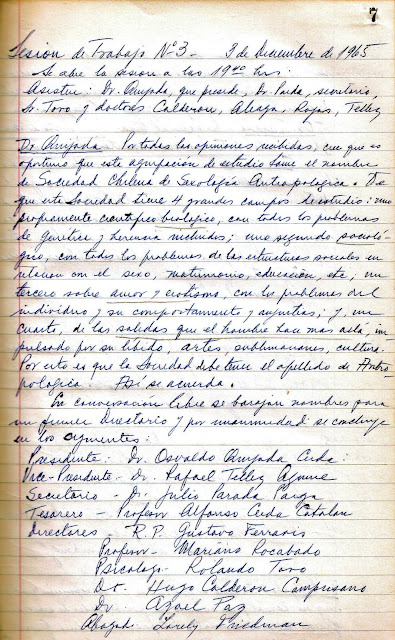 7
Sesion de Trabajo Nº3 - 3 de Diciembre de 1965
Se abre la sesion a las 19⁰⁰ hrs.
Asisten: Dr. Quijada, que preside, Dr. Parda, secretario,
Sr. Toro y doctores Calderon, Aliaga, Rojas, Tellez
Dr Quijada Por todas las opiniones recibidas, cree que es
oportuno que esta agrupacion de estudio tome el nombre
de Sociedad Chilena de Sexología Antropologica. De
que esta Sociedad tiene 4 grandes campos de estudio: uno
propiamente cientifico biológico, con todos los problemas
de genética y herencia incluidos; uno segundo socioló-
gico, con todos los problemas de las estructuras sociales en
relacion con el sexo, matrimonio, educación, etc; un
tercero sobre amor y erotismo, con los problemas del
individuo y su comportamiento y angustias; y un
cuarto, de las salidas que el hombre hace mas allá, im
pulsado por su libido, artes, sublimaciones, cultura.
Por esto es que la Sociedad debe tener el apellido de Antro
pologica. Asi se acuerda.
En conversacion libre se barajan nombres para
un primer Directorio y por unanimidad se concluye
en los siguientes:
Presidente: Dr. Osvaldo Quijada Cerda:
Vice-Presidente - Dr. Rafael Tellez Aguirre
Secretario - Dr. Julio Parada Parga
Tesorero - Profesor Alfonso Cerda Catalan
Directores - R.P. Gustavo Ferraris
Profesor - Mariano Rocabado
Psicologo - Rolando Toro
Dr. Hugo Calderon Campusano
Dr Azael Paz
Abogado Lorely Friedman